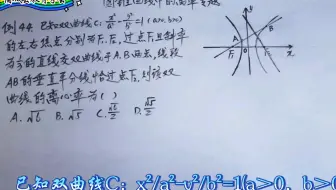 例44. 已知双曲线C: x²/a² - y²/b² = 1 (a>0, b>0)
的左、右焦点分别为F₁、F₂,过点F₁且斜率
的直线交双曲线于A、B两点,线段
AB的垂直平分线恰过点F₂,则该双
曲线的离心率为( )
A. √6 B. √5 C. √6/2 D. √5/2
A
B
F₁
F₂
x
已知双曲线C:x²/a²-y²/b²=1(a>0,b>